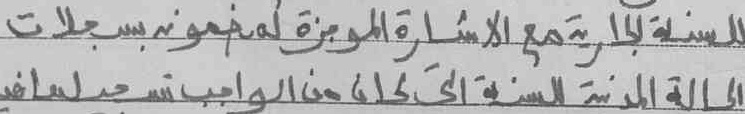 للسنة الجارية مع الاشارة الموجزة لمضمونه بسجلات
الحالة المدنية للسنة التي كان من الواجب تسجيلها فيها